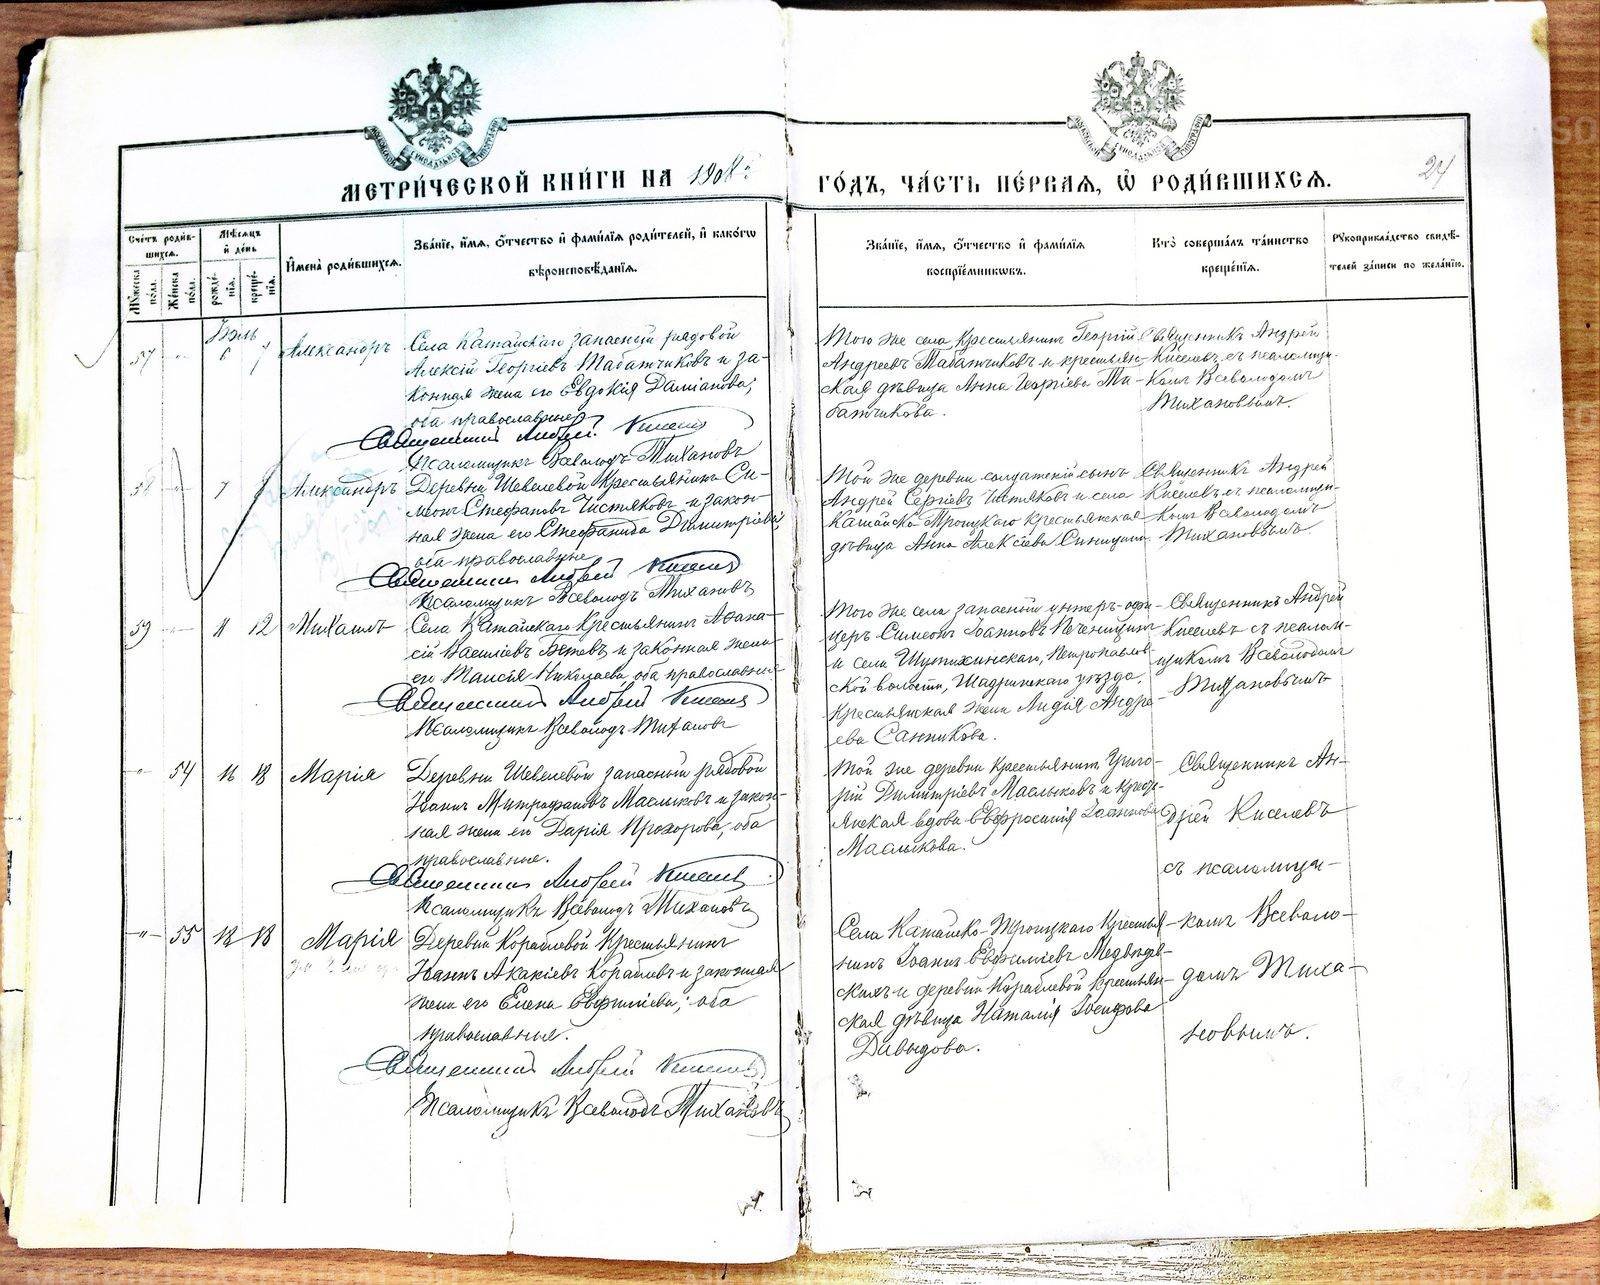 МЕТРИ́ЧЕСКОЙ КНИ́ГИ НА 1908 г
ГО́ДЪ, ЧА́СТЬ ПЕ́РВАЯ, Ѿ РОДИ́ВШИХСЯ.
24
Сче́тъ роди́в-
шихся.
Му́жеска пола.
Же́нска пола.
Мѣ́сяцъ
и҆ де́нь
рожде́-
нїя.
креще́-
нїя.
И҆мена̀ роди́вшихся.
Зва́нїе, и҆́мя, ѻ҆́тчество и҆ фами́лїя роди́телей, и҆ како́гѡ
вѣроисповѣ́данїя.
Зва́нїе, и҆́мя, ѻ҆́тчество и҆ фами́лїя
воспрїе́мникѡвъ.
Кто̀ соверша́лъ та́инство
креще́нїя.
Рꙋкоприкла́дство свидѣ́-
телей за́писи по жела́нїю.
57 -"- 6 7 Александръ
Села Катайскаго запасный рядовой
Алексій Георгіевъ Табатчиковъ и за-
конная жена его Евдокія Даміанова;
оба православные
Священникъ Андрей Киселевъ
Псаломщикъ Всеволодъ Тихановъ
Того же села крестьянинъ Георгій
Андреевъ Табатчиковъ и крестьян-
ская дѣвица Анна Георгіева Та-
батчикова.
Священникъ Андрей
Киселевъ съ псаломщи-
комъ Всеволодомъ
Тихановымъ.
58 -"- 7 Александръ
Деревни Шевелевой крестьянинъ Си-
меонъ Стефановъ Чистяковъ и закон-
ная жена его Стефанида Димитріева,
оба православные
Священникъ Андрей Киселевъ
Псаломщикъ Всеволодъ Тихановъ
Той же деревни солдатскій сынъ
Андрей Сергіевъ Чистяковъ и села
Катайско Троицкаго крестьянская
дѣвица Анна Алексіева Синицина
Священникъ Андрей
Киселевъ съ псаломщи-
комъ Всеволодомъ
Тихановымъ.
59 -"- 11 12 Михаилъ
Села Катайскаго крестьянинъ Аѳана-
сій Василіевъ и законная жена
его Таисія Николаева, оба православные
Священникъ Андрей Киселевъ
Псаломщикъ Всеволодъ Тихановъ
Того же села запасный унтеръ-офи-
церъ Симеонъ Іоанновъ Печеницинъ
и села Шутихинскаго, Петропавлов-
ской волости, Шадринскаго уѣзда,
крестьянская жена Лидія Андре-
ева Санникова.
Священникъ Андрей
Киселевъ съ псалом-
щикомъ Всеволодомъ
Тихановымъ
-"- 54 16 18 Марія
Деревни Шевелевой запасный рядовой
Іоаннъ Митрофановъ Маслыковъ и закон-
ная жена его Дарія Прохорова, оба
православные.
Священникъ Андрей Киселевъ
Псаломщикъ Всеволодъ Тихановъ
Той же деревни крестьянинъ Григо-
рій Димитріевъ Маслыковъ и кресть-
янская вдова Евфросинія Іоаннова
Маслыкова.
Священникъ Ан-
дрей Киселевъ
съ псаломщи-
-"- 55 18 18 Марія
Деревни Кораблевой крестьянинъ
Іоаннъ Акакіевъ Кораблевъ и законная
жена его Елена Евфиміева; оба
православные.
Священникъ Андрей Киселевъ
Псаломщикъ Всеволодъ Тихановъ
Села Катайско-Троицкаго крестья-
нинъ Іоаннъ Евфиміевъ Медвѣдев-
скихъ и деревни Кораблевой крестьян-
ская дѣвица Наталія Іосифова
Давыдова.
комъ Всеволо-
домъ Тиха-
новымъ.